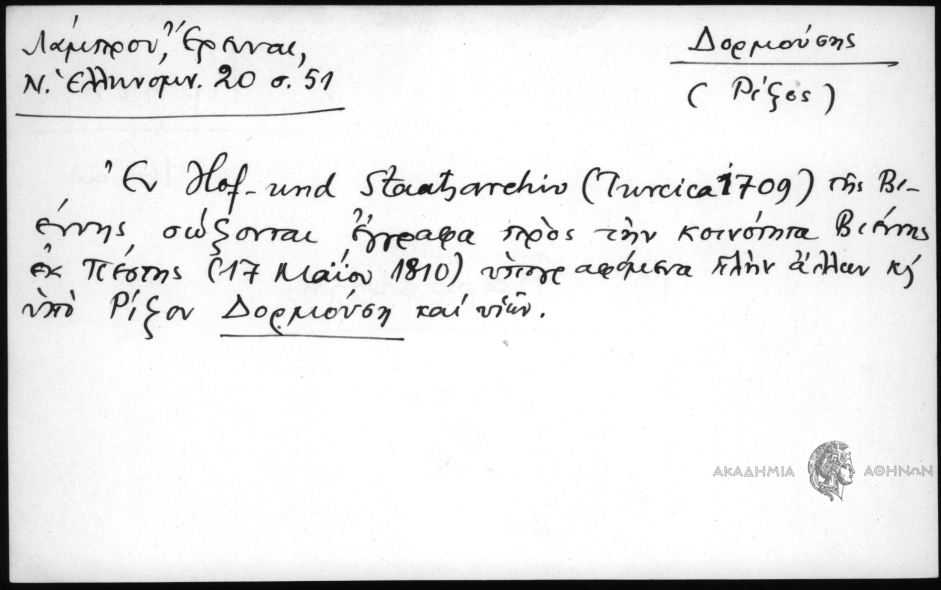 Λάμπρου, Ἔρευναι,
Ν. Ἑλληνομν. 20 σ. 51
Δορμούσης
(Ρίζος)
Ἐν Hof- und Staatsarchiv (Turcica 1709) τῆς Βι-
έννης σώζονται ἔγγραφα πρὸς τὴν κοινότητα Βιέννης
ἐκ Πέστης (17 Μαΐου 1810) ὑπογραφόμενα πλὴν ἄλλων κ̀
ὑπὸ Ρίζου Δορμούση καὶ υἱῶν.
ΑΚΑΔΗΜΙΑ ΑΘΗΝΩΝ